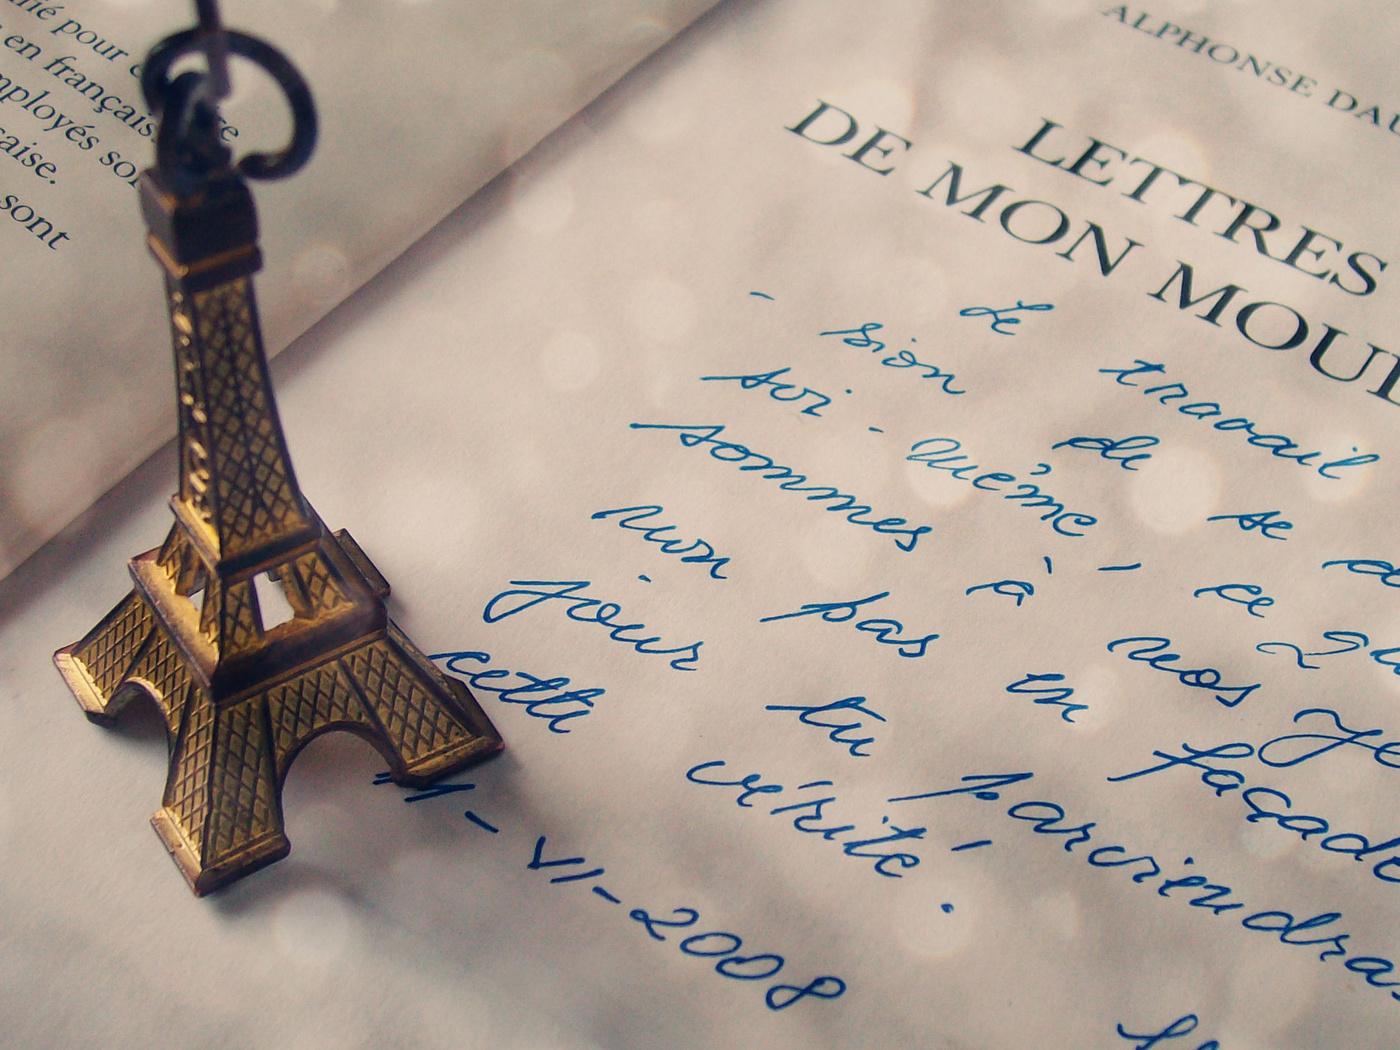 ifié pour
en français
mployés so
çaise.
sont
ALPHONSE DAU
LETTRES
DE MON MOUL
Le travail
- sion de se d
soi-même, ce qu
sommes à nos ye
non pas en façade
jour tu parviendras
cette vérité.
VI-2008